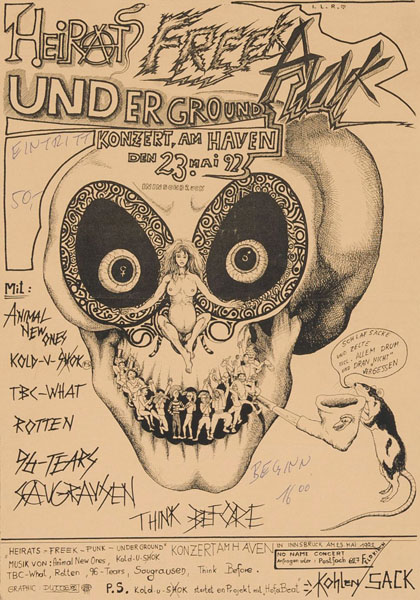 HEIRATS FREEK PUNK
UNDERGROUND
KONZERT, AM HAVEN
DEN 23. MAI 92
EINTRITT
50,-
MIT:
ANIMAL
NEW
ONES
KOLD-U-SMOK
TBC-WHAT
ROTTEN
96-TEARS
SAUGRAUSEN
THINK BEFORE
SCHLAFSÄCKE
UND ZELTE
INCL. ALLEM DRUM
UND DRAN "NICHT"
VERGESSEN
BEGINN
16 00
"HEIRATS-FREEK-PUNK-UNDERGROUND" KONZERT AM HAVEN IN INNSBRUCK AM 23. MAI 1992
MUSIK VON: Animal New Ones, Kold-U-Smok
TBC-What, Rotten, 96-Tears, Saugrausen, Think Before.
NO NAMI CONCERT
Anfragen über: Postfach 667
GRAPHIC
P.S. Kold-u-SMOK startet en Projekt mit
KOHLEN SACK